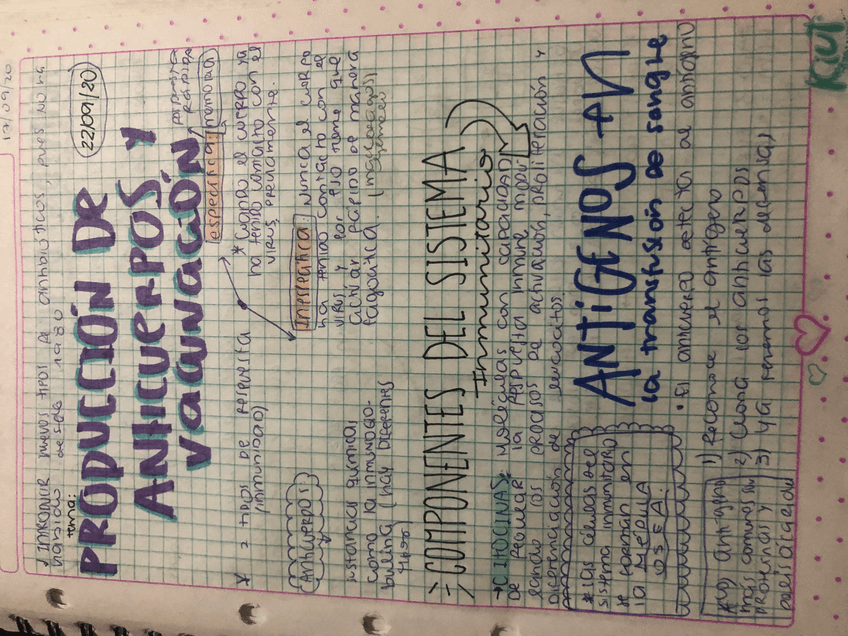 17/09/20
✓ Introducir nuevos tipos de antibióticos, pues no ha
habido desde 1980
22/09/20
tema:
PRODUCCIÓN DE
ANTICUERPOS Y
VACUNACIÓN
* 2 tipos de respuesta
(inmunidad)
específica: memoria
respuesta
rápida
* Cuando el cuerpo ya
ha tenido contacto con el
virus previamente.
Inespecífica: Nunca el cuerpo
ha tenido contacto con el
virus y por eso tiene que
activar rápido de manera
fagocítica.
Anticuerpos
sustancia química
como la inmunoglo-
bulina (hay diferentes
tipos)
COMPONENTES DEL SISTEMA
Inmunitario
→ CITOCINAS: moléculas con capacidad
de regular la respuesta inmune modi-
ficando los procesos de activación, proliferación y
diferenciación de leucocitos.
* Las células del
sistema inmunitario
se forman en
la MÉDULA
ÓSEA.
ANTÍGENOS en
la transfusión de sangre
• El anticuerpo detecta al antígeno
1) Reconoce el antígeno
2) Crea los anticuerpos
3) Ya tenemos las defensas
antígeno
más comunes son
proteínas y
polisacáridos
Kiut